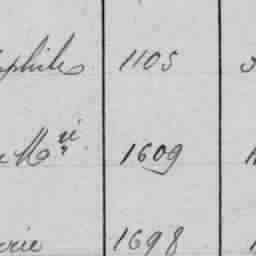 phile 1105
M.ie 1609
rie 1698